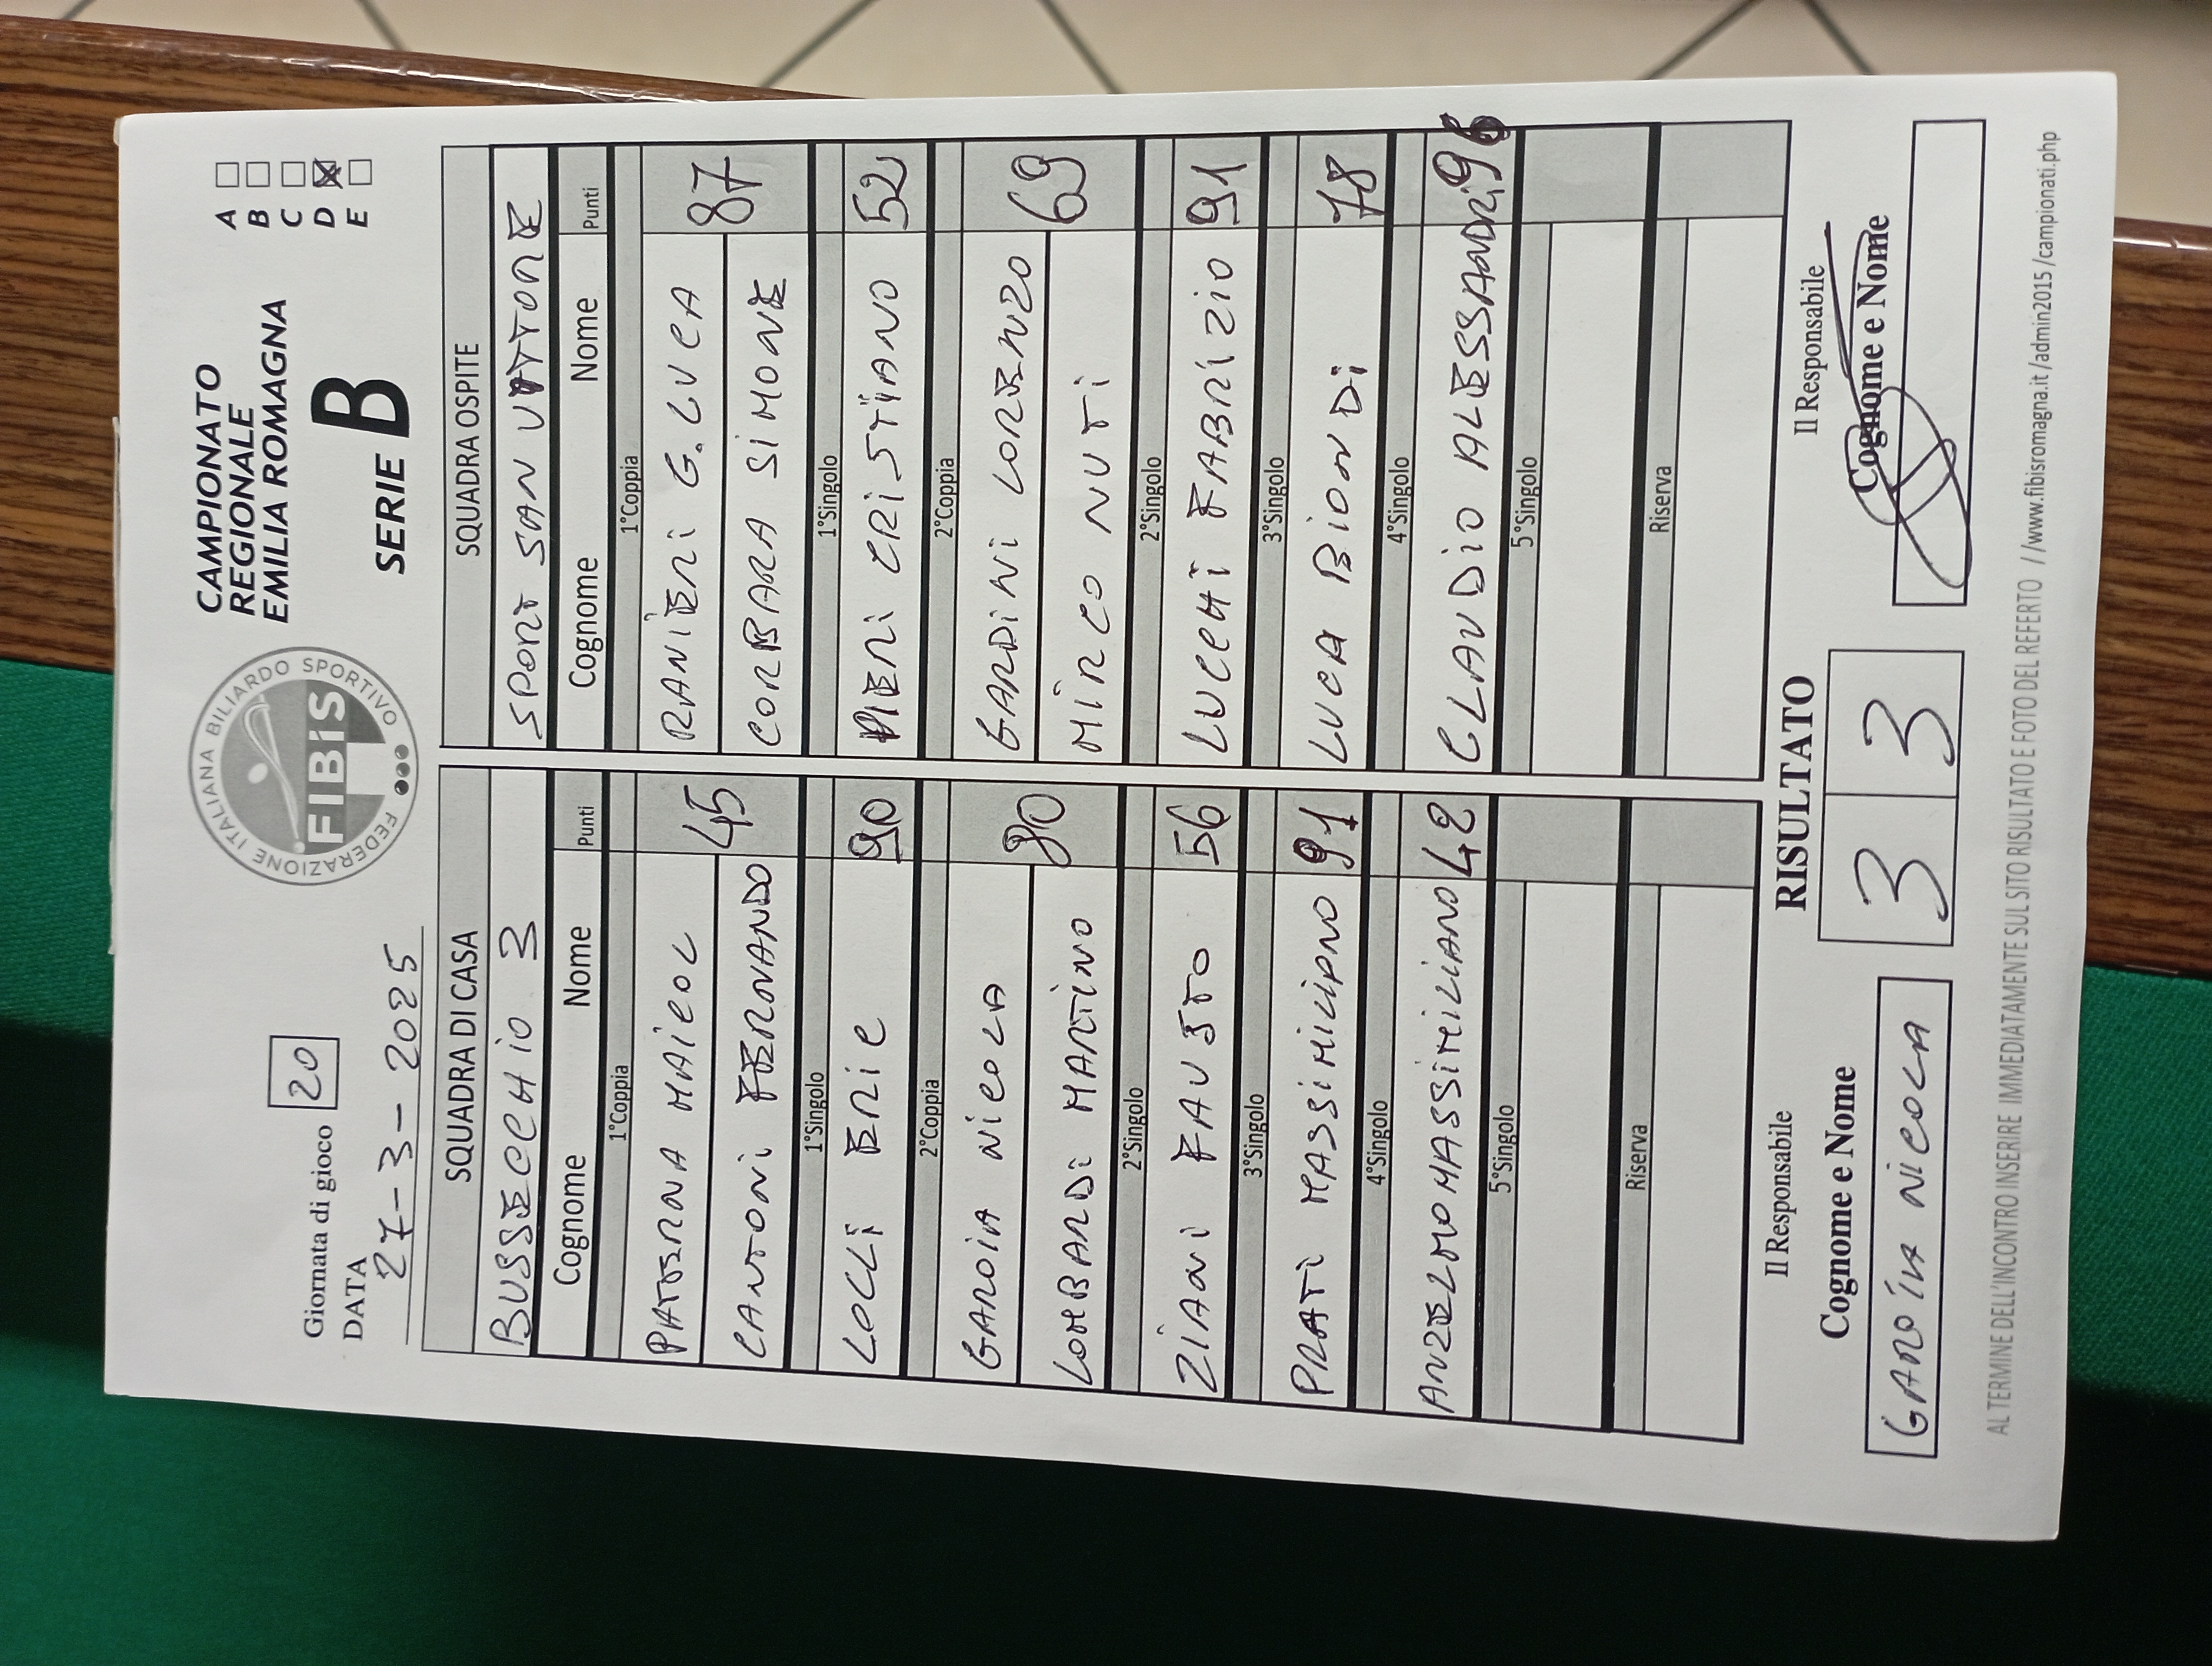 Giornata di gioco 20
DATA
27-3-2025
FEDERAZIONE ITALIANA BILIARDO SPORTIVO
FIBiS
CAMPIONATO
REGIONALE
EMILIA ROMAGNA
SERIE B
A
B
C
D
E
SQUADRA DI CASA SQUADRA OSPITE
BUSSECCHIO 3 SPORT SAN VITTORE
Cognome Nome Punti Cognome Nome Punti
1°Coppia 1°Coppia
PATERNA MAICOL RANIERI G.LUCA
45 87
CANTONI FERNANDO CORBARA SIMONE
1°Singolo 1°Singolo
LOCLI ERIC 90 PIERI CRISTIANO 52
2°Coppia 2°Coppia
GAROIA NICOLA GARDINI LORENZO
80 69
LOMBARDI MARTINO MIRCO NUTI
2°Singolo 2°Singolo
ZIANI FAUSTO 56 LUCCHI FABRIZIO 91
3°Singolo 3°Singolo
PRATI MASSIMILIANO 91 LUCA BIONDI 78
4°Singolo 4°Singolo
ANZELMO MASSIMILIANO 42 CLAUDIO ALESSANDRI 96
5°Singolo 5°Singolo
Riserva Riserva
Il Responsabile RISULTATO Il Responsabile
Cognome e Nome 3 3 Cognome e Nome
GAROIA NICOLA
AL TERMINE DELL'INCONTRO INSERIRE IMMEDIATAMENTE SUL SITO RISULTATO E FOTO DEL REFERTO //www.fibisromagna.it/admin2015/campionati.php